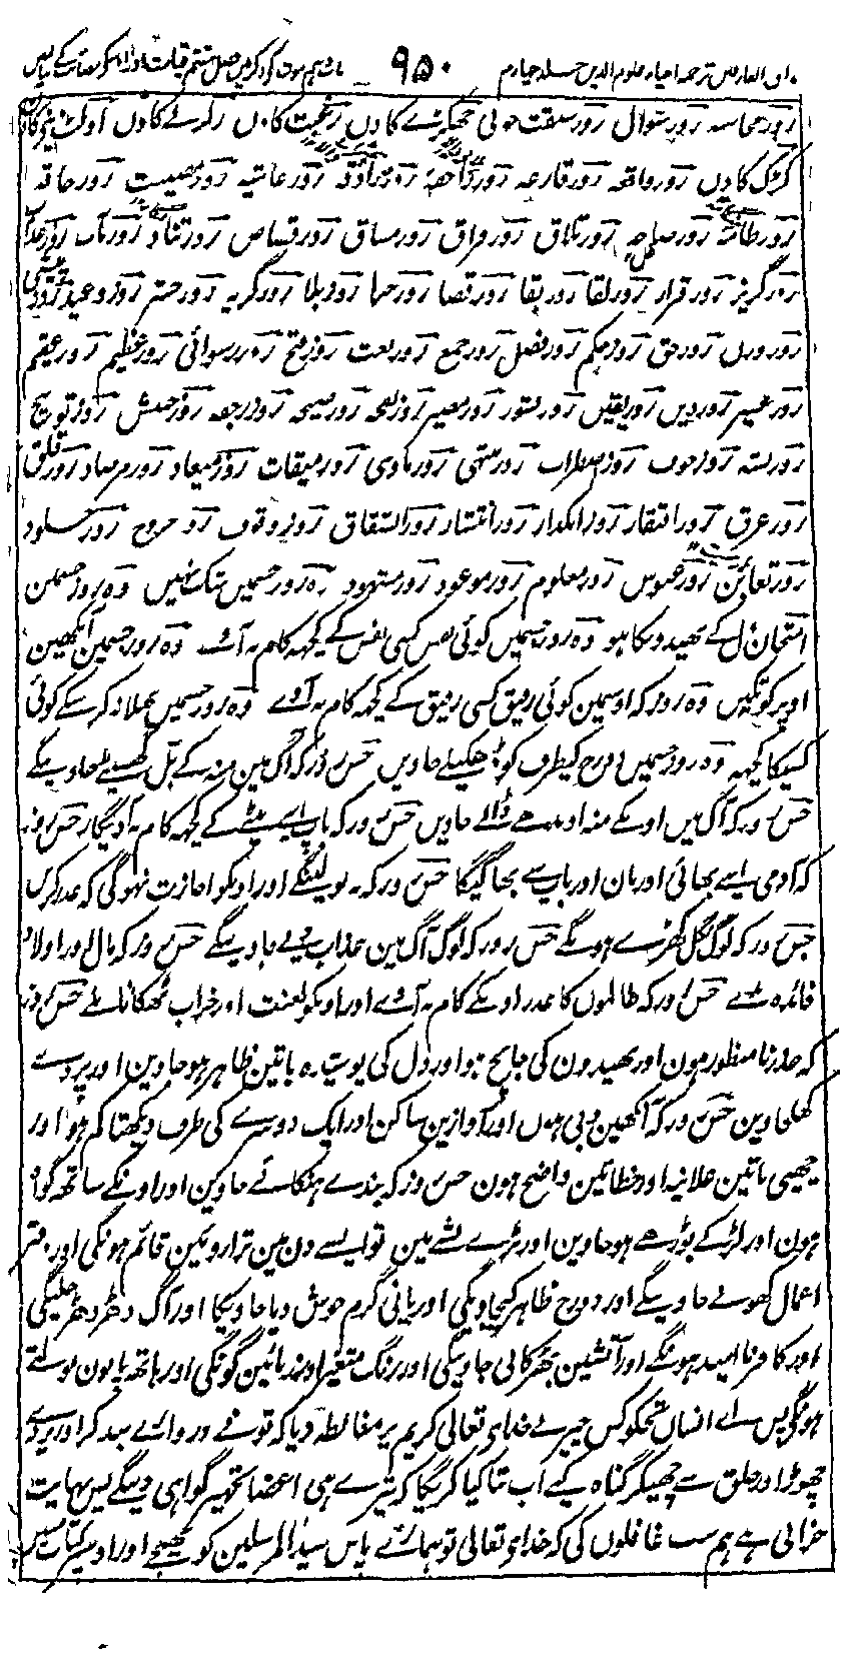 مذاق العارفین ترجمہ احیاء علوم الدین جلد چہارم ۹۵۰ باب دہم موت کے ذکر میں فصل ہشتم قیامت
روز محاسبہ روز سوال روز سبقت جوئی جھگڑنے کا دن زلزلے کا دن
کڑک کا دن روز واقعہ روز قارعہ روز راجفہ روز رادفہ روز غاشیہ روز مصیبت روز حاقہ
روز طامہ روز صاخہ روز تلاق روز فراق روز مساق روز قصاص روز تناد روز مآب روز عذاب
روز گریز روز قرار روز لقا روز بقا روز قضا روز جزا روز بلا روز گریہ روز حشر روز وعید روز پیشی
روز وزن روز حق روز حکم روز فصل روز جمع روز بعث روز فتح روز رسوائی روز عظیم روز عقیم
روز عسیر روز دین روز یقین روز نشور روز مصیر روز نفخہ روز صیحہ روز رجفہ روز جنبش روز توبیخ
روز خوف روز اضطراب روز منتہی روز ماوی روز میقات روز میعاد روز مرصاد روز قلق
روز عرق روز افتقار روز انکدار روز انتشار روز انشقاق روز وقوف روز خروج روز خلود
روز تغابن روز عبوس روز معلوم روز موعود روز مشہود وہ روز جسمیں شک نہیں وہ روز جسمین
امتحان دل کے بھیدونکا ہو وہ روز جسمیں کوئی نفس کسی نفس کے کچھہ کام نہ آوے وہ روز جسمین آنکھین
اوپر کو تکیں وہ روز کہ اوسمین کوئی رفیق کسی رفیق کے کچھہ کام نہ آوے وہ روز جسمیں بھلا نہ کر سکے کوئی
کسیکا کچھہ وہ روز جسمیں دوزخ کیطرف کو ڈھکیلے جاویں جس روز کہ آگ مین منہ کے بل گھسیٹے جاوینگے
جس روز کہ آگ میں اونکے منہ اوندھے ڈالے جاویں جس روز کہ باپ اپنے بیٹے کے کچھہ کام نہ آویگا جس روز
کہ آدمی اپنے بھائی اور مان اور باپ سے بھاگیگا جس روز کہ نہ بولینگے اور اونکو اجازت نہوگی کہ عذر کریں
جس روز کہ لوگ نکل کھڑے ہونگے جس روز کہ لوگ آگ مین عذاب دیے جاوینگے جس روز کہ مال اور اولاد
فائدہ نہ دے جس روز کہ ظالموں کا عذر اونکے کام نہ آوے اور اونکو لعنت اور خراب ٹھکانا ملے جس روز
کہ عذر نامنظور ہون اور بھیدون کی جانچ ہو اور دل کی پوشیدہ باتین ظاہر ہو جاوین اور پردے
کھلجاوین جس روز کہ آنکھین دبی ہوں اور آوازین ساکن اور ایک دوسرے کی طرف دیکھتا کم ہو اور
چھپی باتین علانیہ اور خطائین واضح ہون جس روز کہ بندے ہنکائے جاوین اور اونکے ساتھ گواہ
ہون اور لڑکے بوڑھے ہو جاوین اور بڑے نشے مین تو ایسے دن مین ترازوئین قائم ہونگی اور دفتر
اعمال کھولے جاوینگے اور دوزخ ظاہر کیجاویگی اور پانی گرم جوش دیا جاویگا اور آگ دھڑ دھڑ جلیگی
اور کافر ناامید ہونگے اور آتشین بھڑکائی جاوینگی اور رنگ متغیر اور زبانین گونگی اور ہاتھ پانون بولتے
ہونگے پس اے انسان تجھکو کس چیز نے خداے تعالی کریم پر مغالطہ دیا کہ تونے دروازے بند کر اور پردے
چھوڑ اور خلق سے چھپکر گناہ کیے اب بتا کیا کریگا کہ تیرے ہی اعضا تجھپر گواہی دینگے پس نہایت
خرابی ہے ہم سب غافلوں کی کہ خداے تعالی تو ہمارے پاس سید المرسلین کو بھیجے اور اونپر کتاب مبین